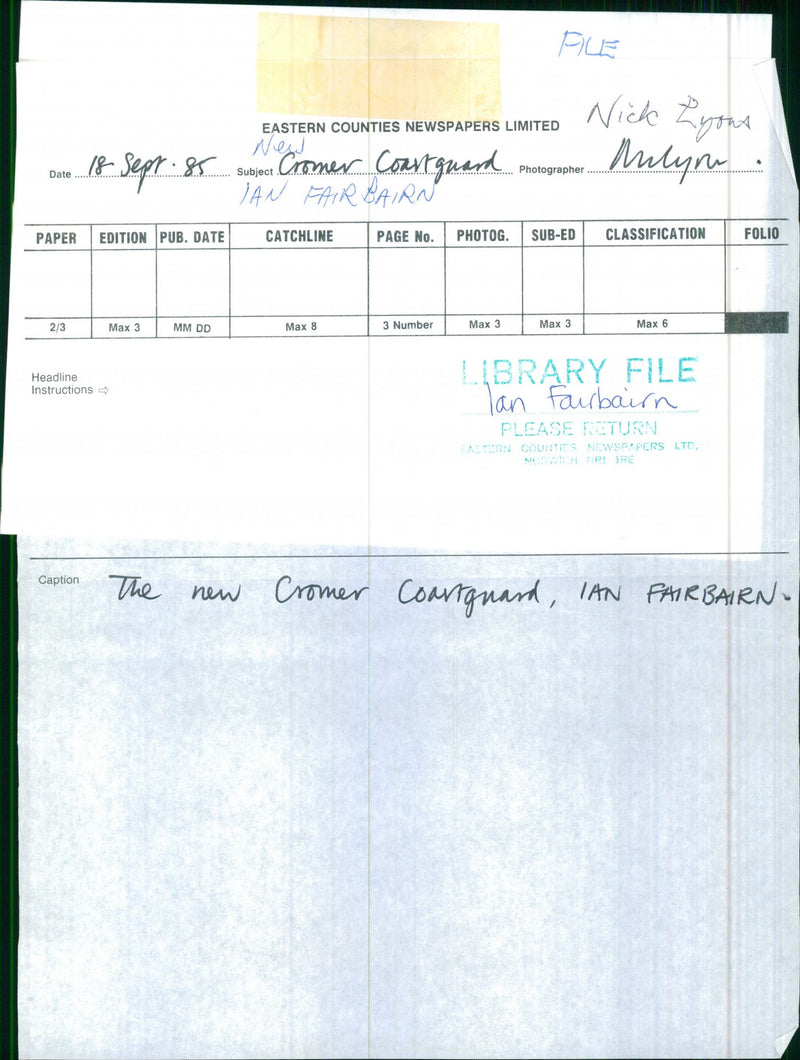 FILE
EASTERN COUNTIES NEWSPAPERS LIMITED
Nick Lyons
New
Date 18 Sept. 85 Subject Cromer Coastguard Photographer
IAN FAIRBAIRN
PAPER EDITION PUB. DATE CATCHLINE PAGE No. PHOTOG. SUB-ED CLASSIFICATION FOLIO
2/3 Max 3 MM DD Max 8 3 Number Max 3 Max 3 Max 6
Headline
Instructions ⇨
LIBRARY FILE
Ian Fairbairn
PLEASE RETURN
EASTERN COUNTIES NEWSPAPERS LTD.
NORWICH NR1 1RE
Caption The new Cromer Coastguard, IAN FAIRBAIRN.